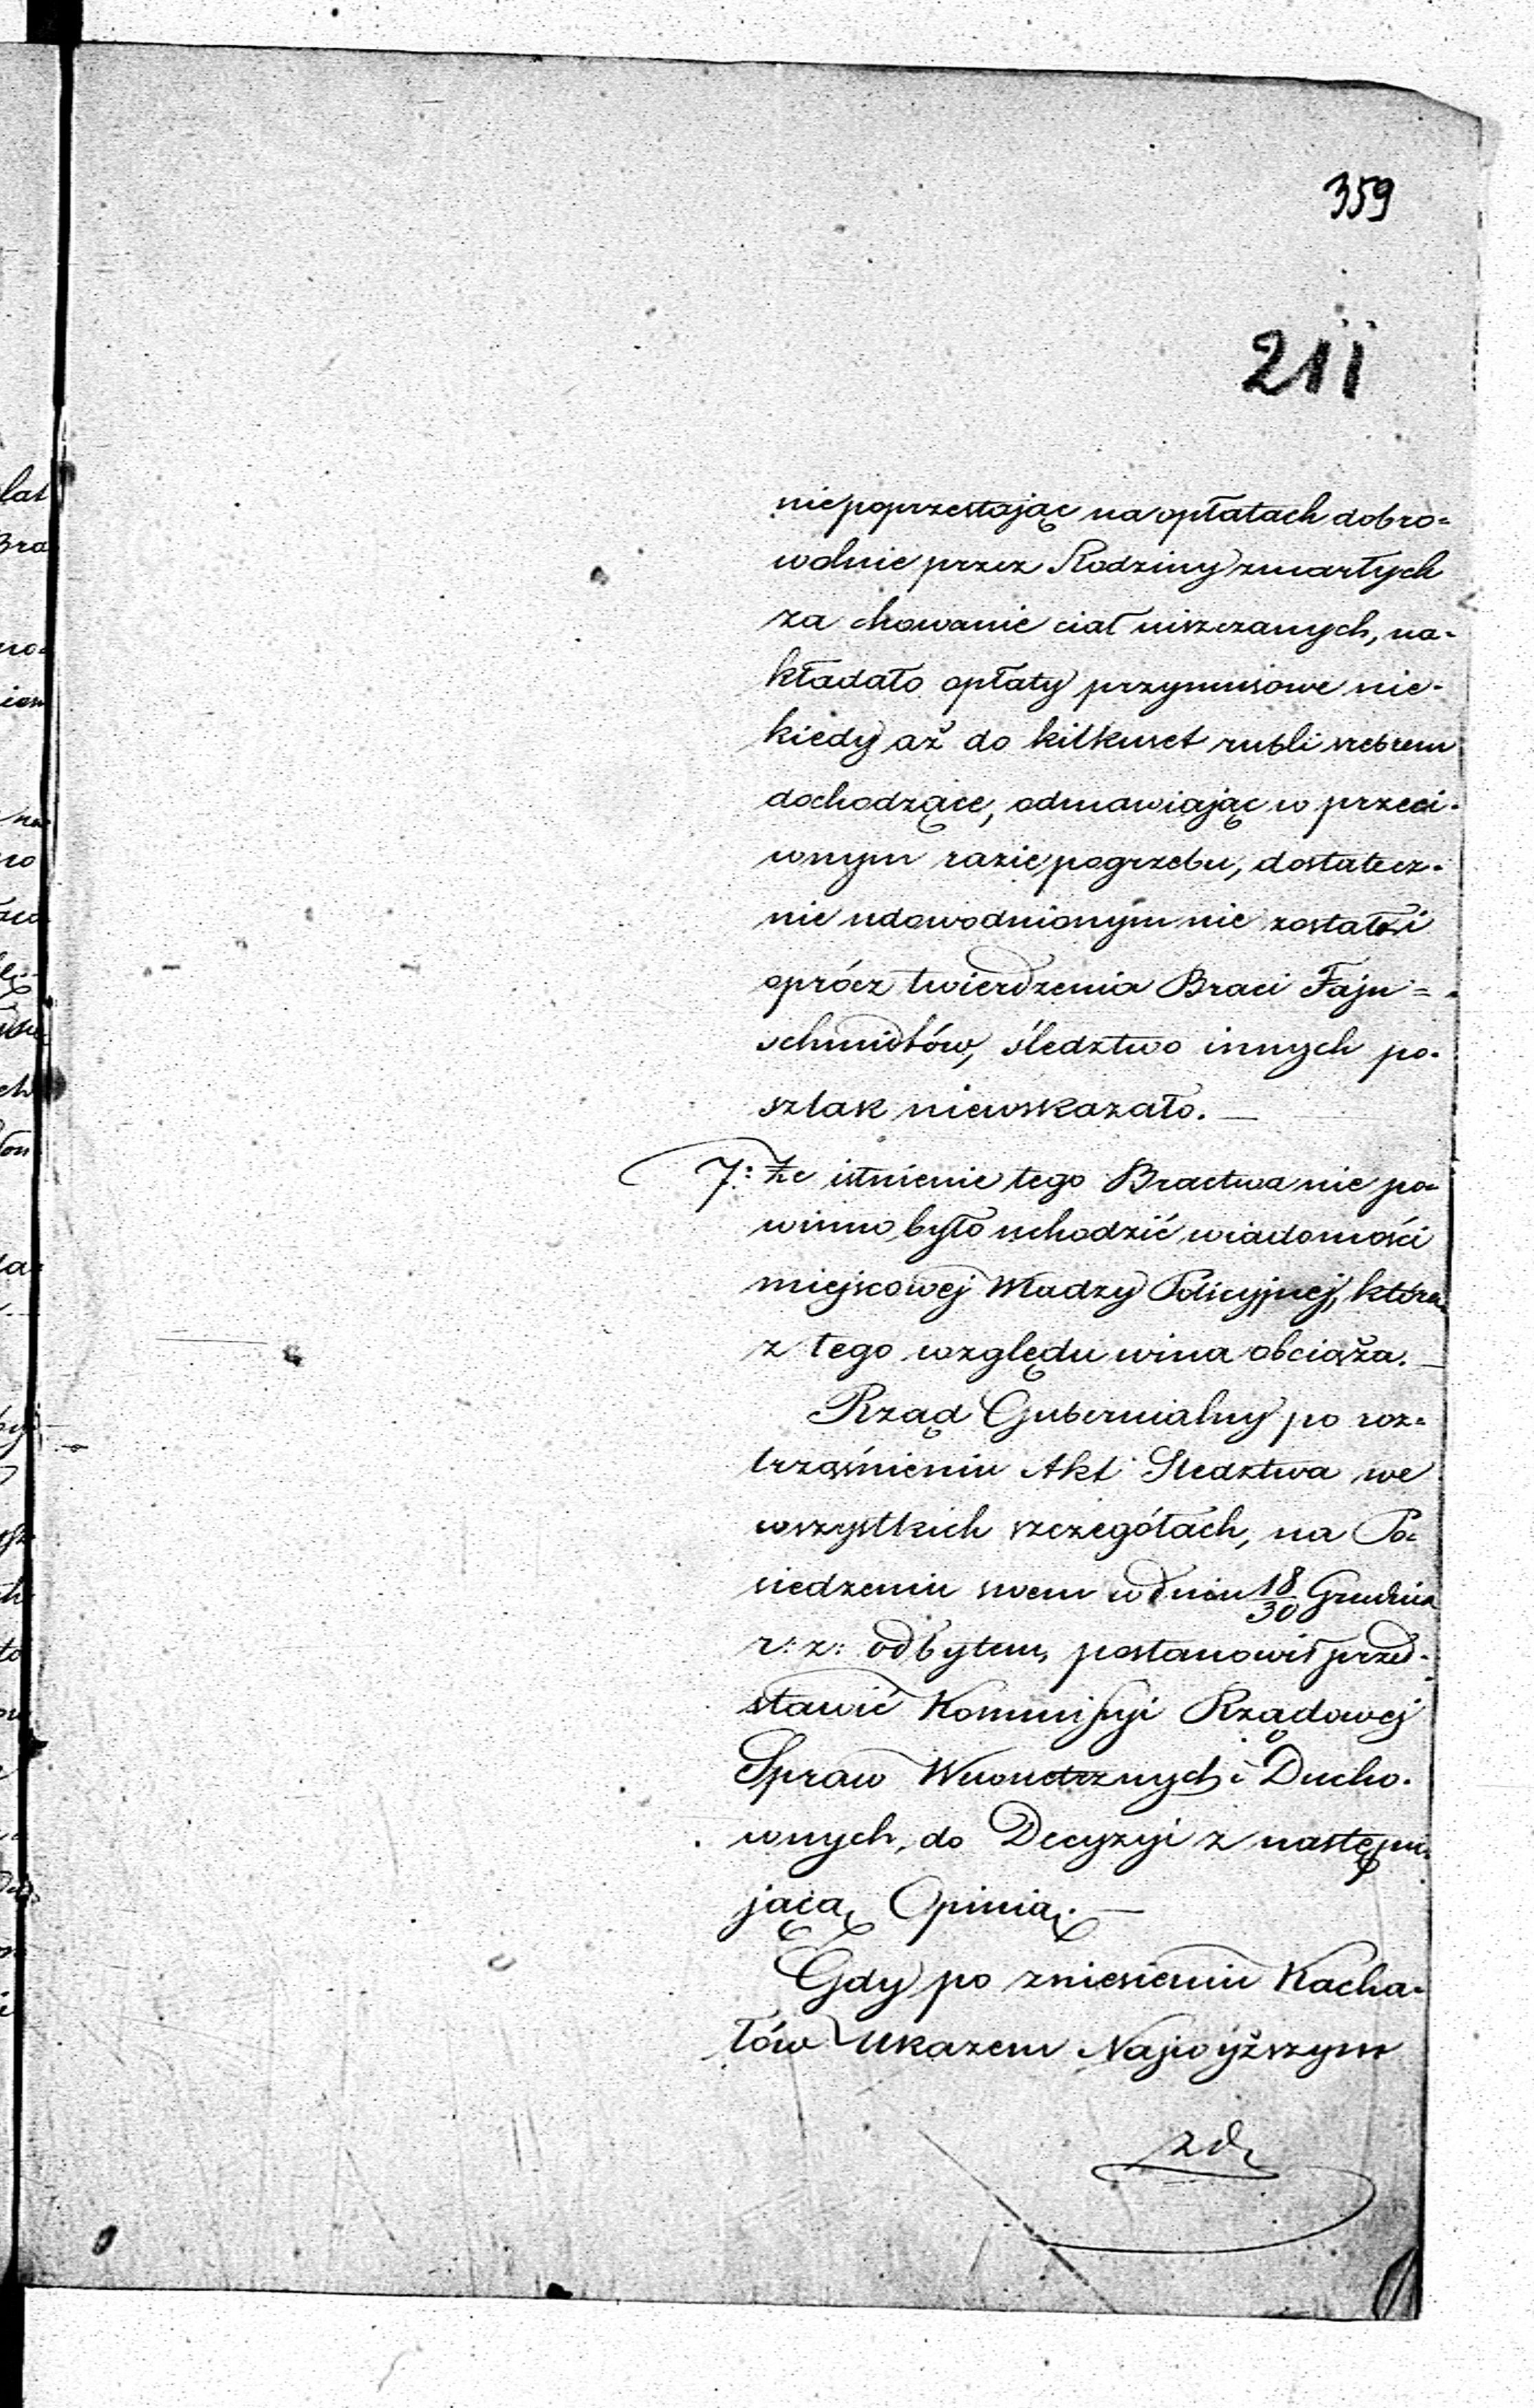 359
211
nie poprzestając na opłatach dobro=
wolnie przez Rodziny zmarłych
za chowanie ciał uiszczanych, na-
kładało opłaty przymusowe nie-
kiedy aż do kilkuset rubli srebrem
dochodzące, odmawiając w przeci-
wnym razie pogrzebu, dostatecz-
nie udowodnionym nie został i
oprócz twierdzenia Braci Fajn=
schmidtów, śledztwo innych po-
szlak niewskazało. —
7: Że istnienie tego Bractwa nie po-
winno było uchodzić wiadomości
miejscowej Władzy Policyjnej, która
z tego względu wina obciąża. —
Rząd Gubernialny po roz-
trząśnieniu Akt Śledztwa we
wszystkich szczegółach, na Po-
siedzeniu swem w dniu 18/30 Grudnia
r: z: odbytem, postanowił przed-
stawić Kommissyi Rządowej
Spraw Wewnetrznych i Ducho-
wnych, do Decyzyi z następu-
jącą Opinią. —
Gdy po zniesieniu Kacha-
łów Ukazem Najwyższym
lat
Bra
no-